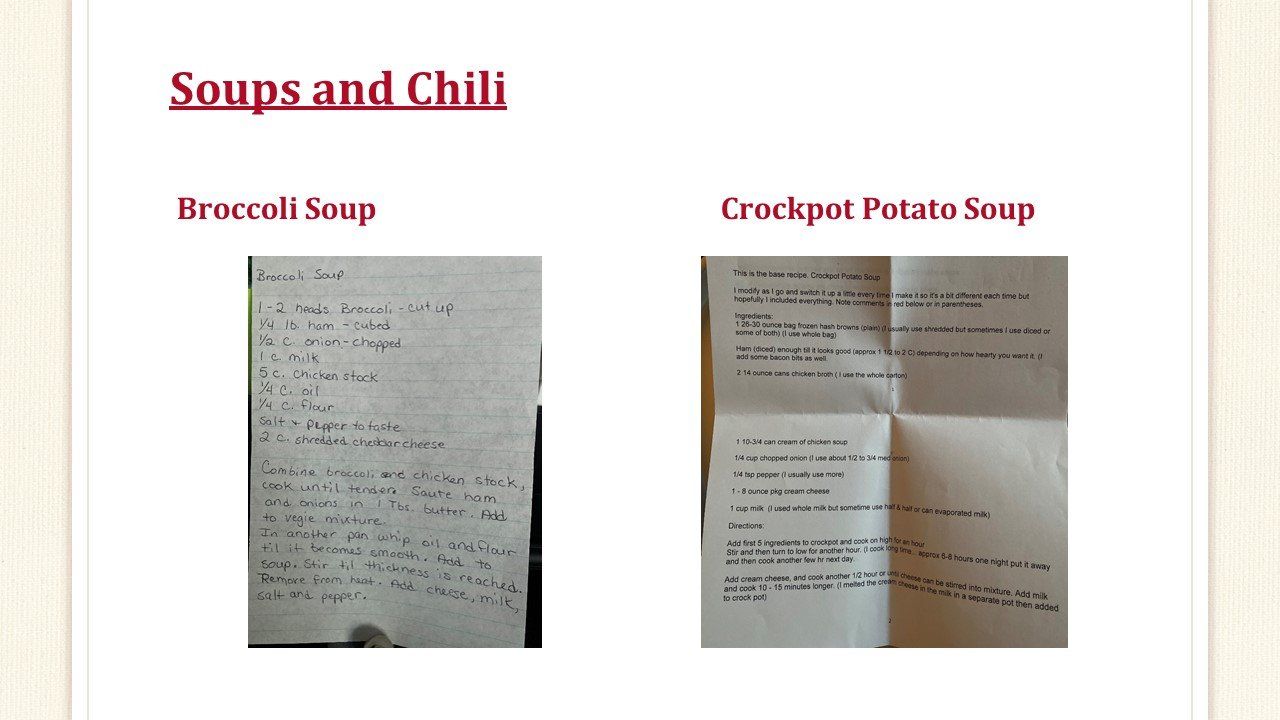 Soups and Chili
Broccoli Soup
Broccoli Soup
1-2 heads Broccoli - cut up
1/4 lb. ham - cubed
1/2 c. onion - chopped
1 c. milk
5 c. chicken stock
1/4 c. oil
1/4 c. flour
Salt + pepper to taste
2 c. shredded cheddar cheese
Combine broccoli and chicken stock,
cook until tender. Saute ham
and onions in 1 Tbs. butter. Add
to vegie mixture.
In another pan whip oil and flour
til it becomes smooth. Add to
soup. Stir til thickness is reached.
Remove from heat. Add cheese, milk,
salt and pepper.
Crockpot Potato Soup
This is the base recipe. Crockpot Potato Soup
I modify as I go and switch it up a little every time I make it so it's a bit different each time but
hopefully I included everything. Note comments in red below or in parentheses.
Ingredients:
1 26-30 ounce bag frozen hash browns (plain) (I usually use shredded but sometimes I use diced or
some of both) (I use whole bag)
Ham (diced) enough till it looks good (approx 1 1/2 to 2 C) depending on how hearty you want it. (I
add some bacon bits as well.
2 14 ounce cans chicken broth ( I use the whole carton)
1
1 10-3/4 can cream of chicken soup
1/4 cup chopped onion (I use about 1/2 to 3/4 med onion)
1/4 tsp pepper (I usually use more)
1 - 8 ounce pkg cream cheese
1 cup milk (I used whole milk but sometime use half & half or can evaporated milk)
Directions:
Add first 5 ingredients to crockpot and cook on high for an hour
Stir and then turn to low for another hour. (I cook long time... approx 6-8 hours one night put it away
and then cook another few hr next day.
Add cream cheese, and cook another 1/2 hour or until cheese can be stirred into mixture. Add milk
and cook 10 - 15 minutes longer. (I melted the cream cheese in the milk in a separate pot then added
to crock pot)
2